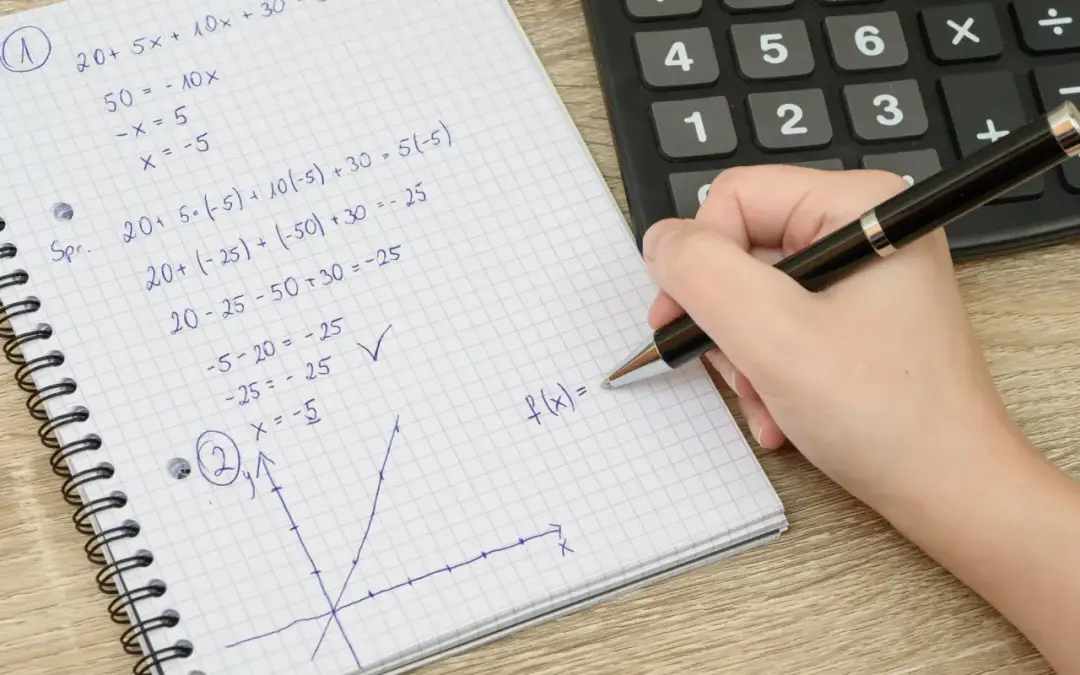 1
20 + 5x + 10x + 30
50 = -10x
-x = 5
x = -5
Spr. 20 + 5·(-5) + 10(-5) + 30 = 5(-5)
20 + (-25) + (-50) + 30 = -25
20 - 25 - 50 + 30 = -25
-5 - 20 = -25
-25 = -25 ✓
x = -5
2
y
x
f(x) =
4 5 6 × ÷
1 2 3 +